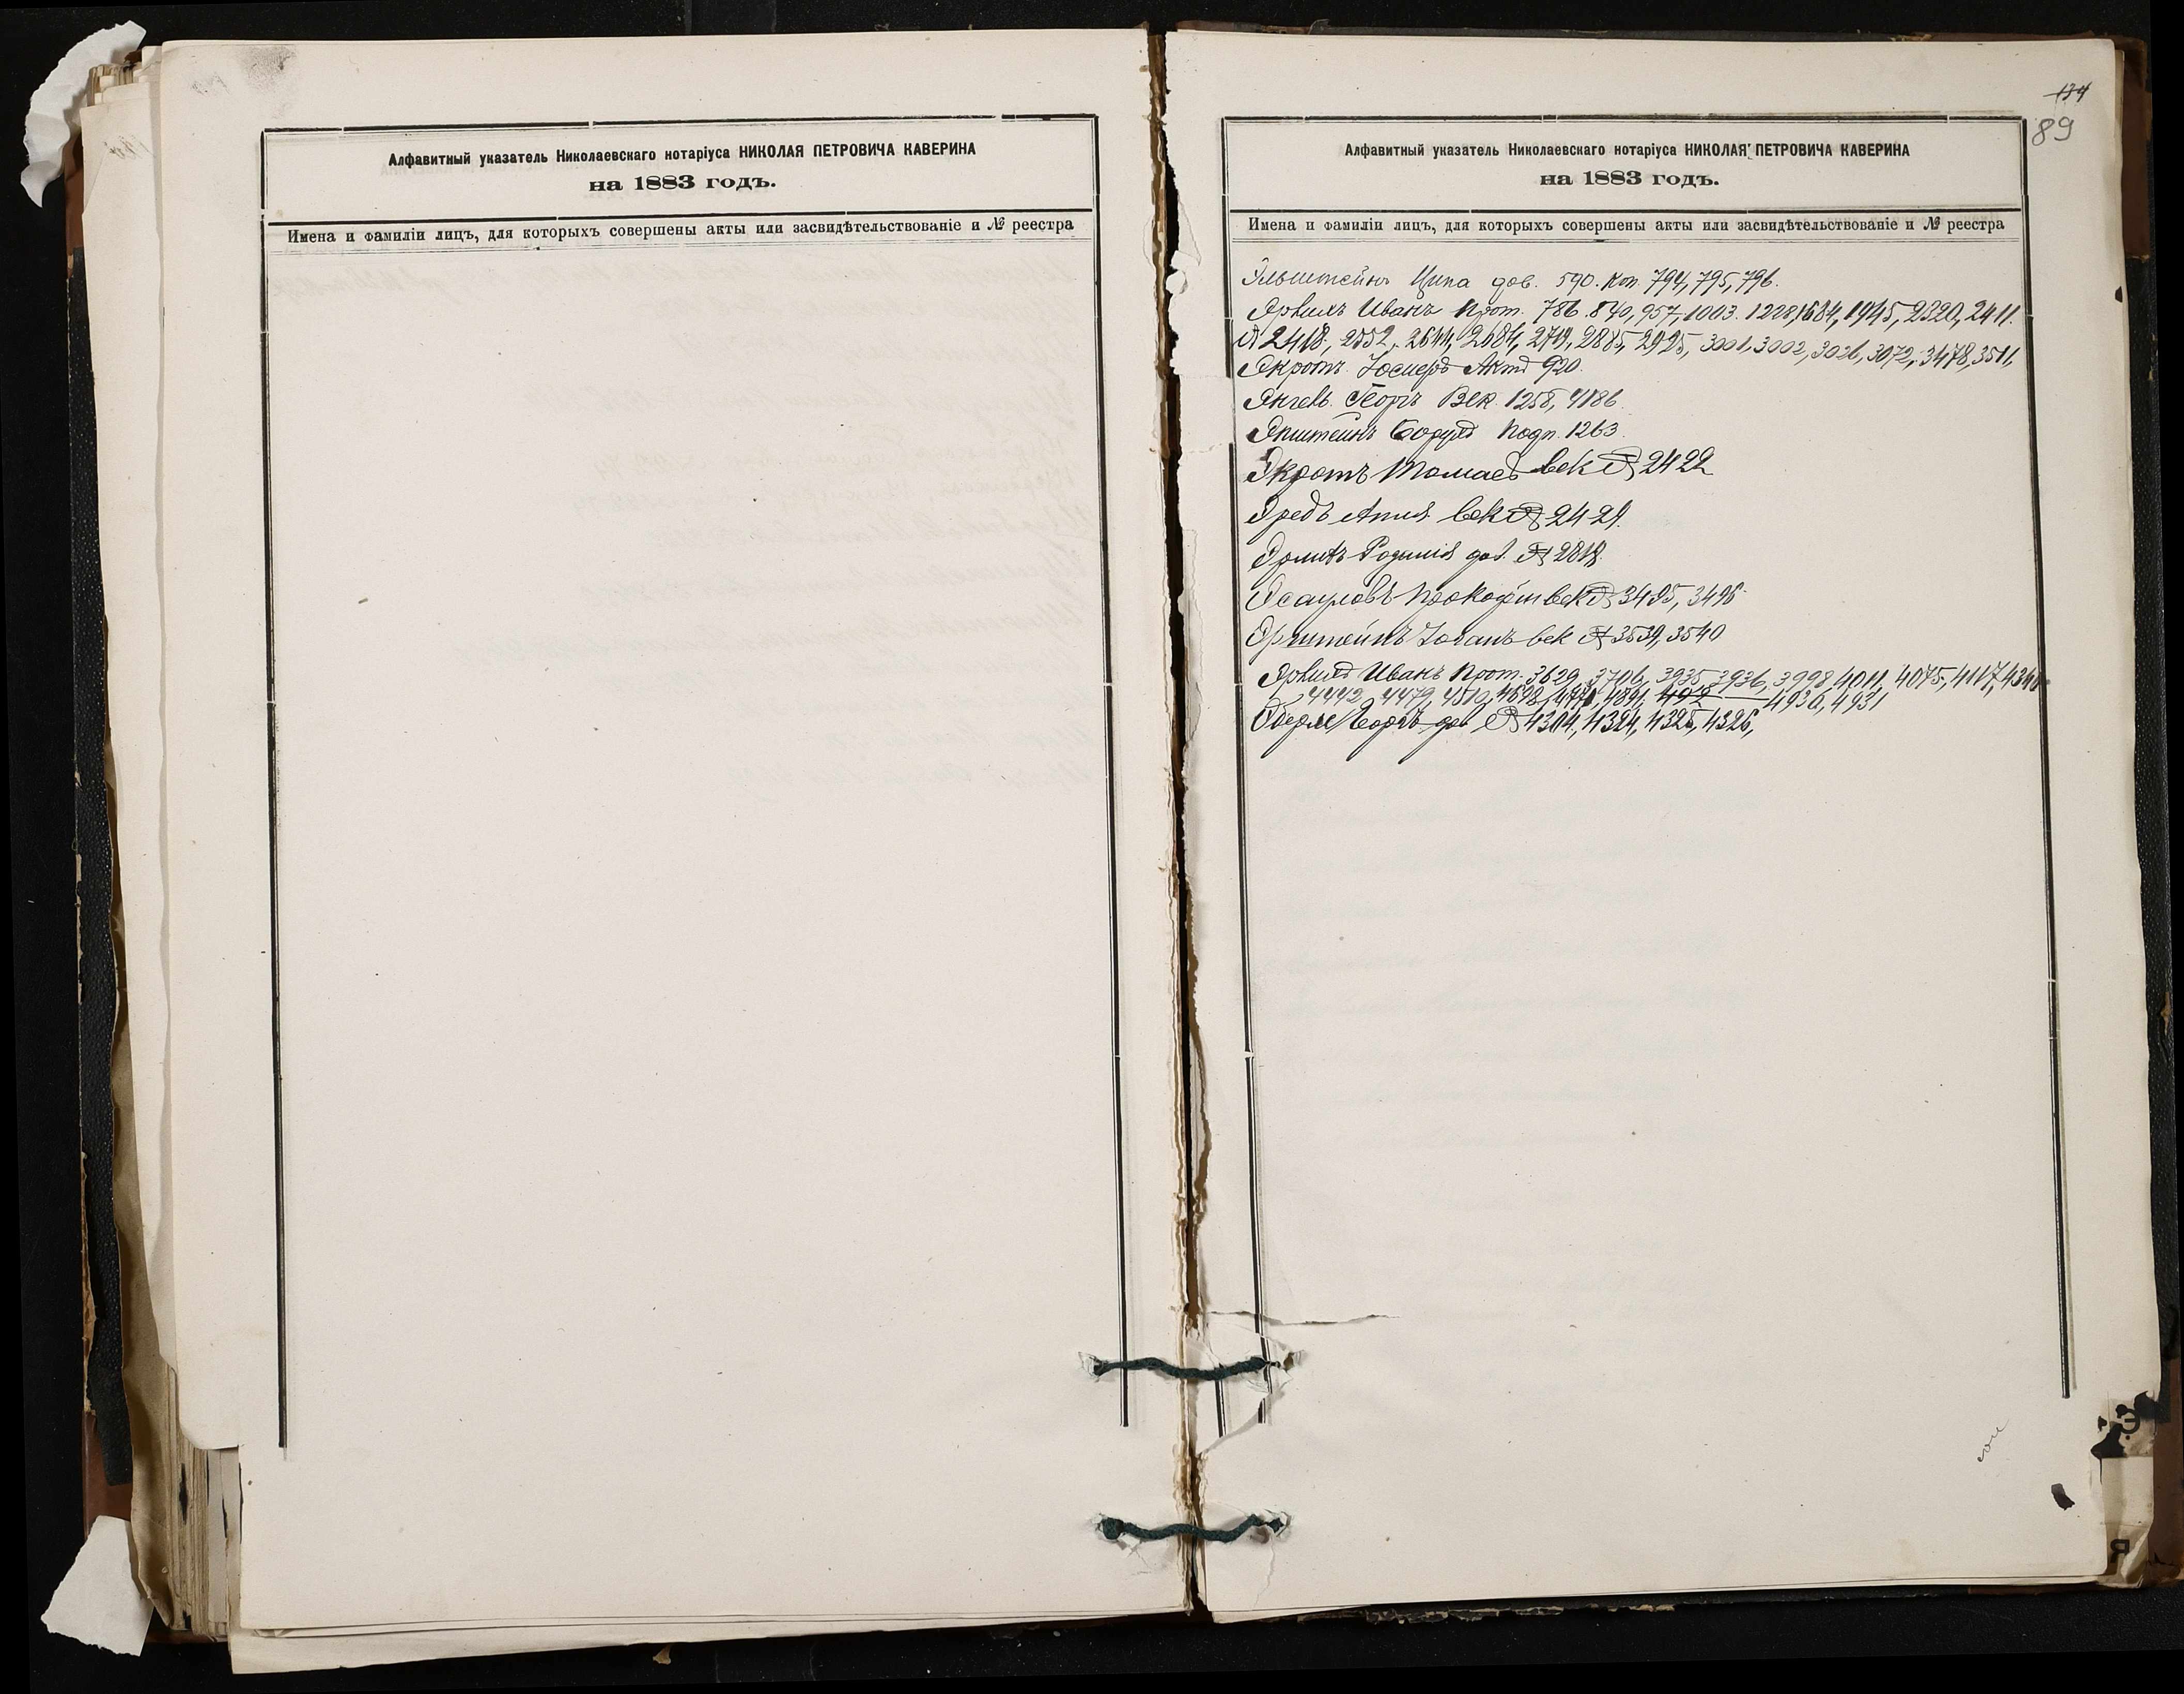 Алфавитный указатель Николаевскаго нотаріуса НИКОЛАЯ ПЕТРОВИЧА КАВЕРИНА
на 1883 годъ.
Имена и фамиліи лицъ, для которыхъ совершены акты или засвидѣтельствованіе и № реестра
134
89
Алфавитный указатель Николаевскаго нотаріуса НИКОЛАЯ ПЕТРОВИЧА КАВЕРИНА
на 1883 годъ.
Имена и фамиліи лицъ, для которыхъ совершены акты или засвидѣтельствованіе и № реестра
Эльштейнъ Ципа дов. 590. Коп. 794, 795, 796.
Иванъ Прот. 786. 840, 957, 1003. 1228, 1684, 1945, 2320, 2411.
№ 2418, 2552, 2644, 2684, 2719, 2885, 2925, 3001, 3002, 3026, 3072, 3478, 3511,
Экротъ Іосифъ Актъ 920.
Георгъ Век. 1258, 4186
Эпштейнъ Борухъ Подп. 1263
Экротъ Томасъ век № 2422
век № 2429.
дов. № 2818.
Эсауловъ Прокофій век № 3495, 3496
Эрштейнъ век № 3539, 3540
Иванъ Прот. 3629, 3706, 3935, 3936, 3998, 4011, 4075, 4117,
4442, 4479, 4510, 4698, 4891, 4930, 4931
дов № 4304, 4324, 4325, 4326,
Э
Я